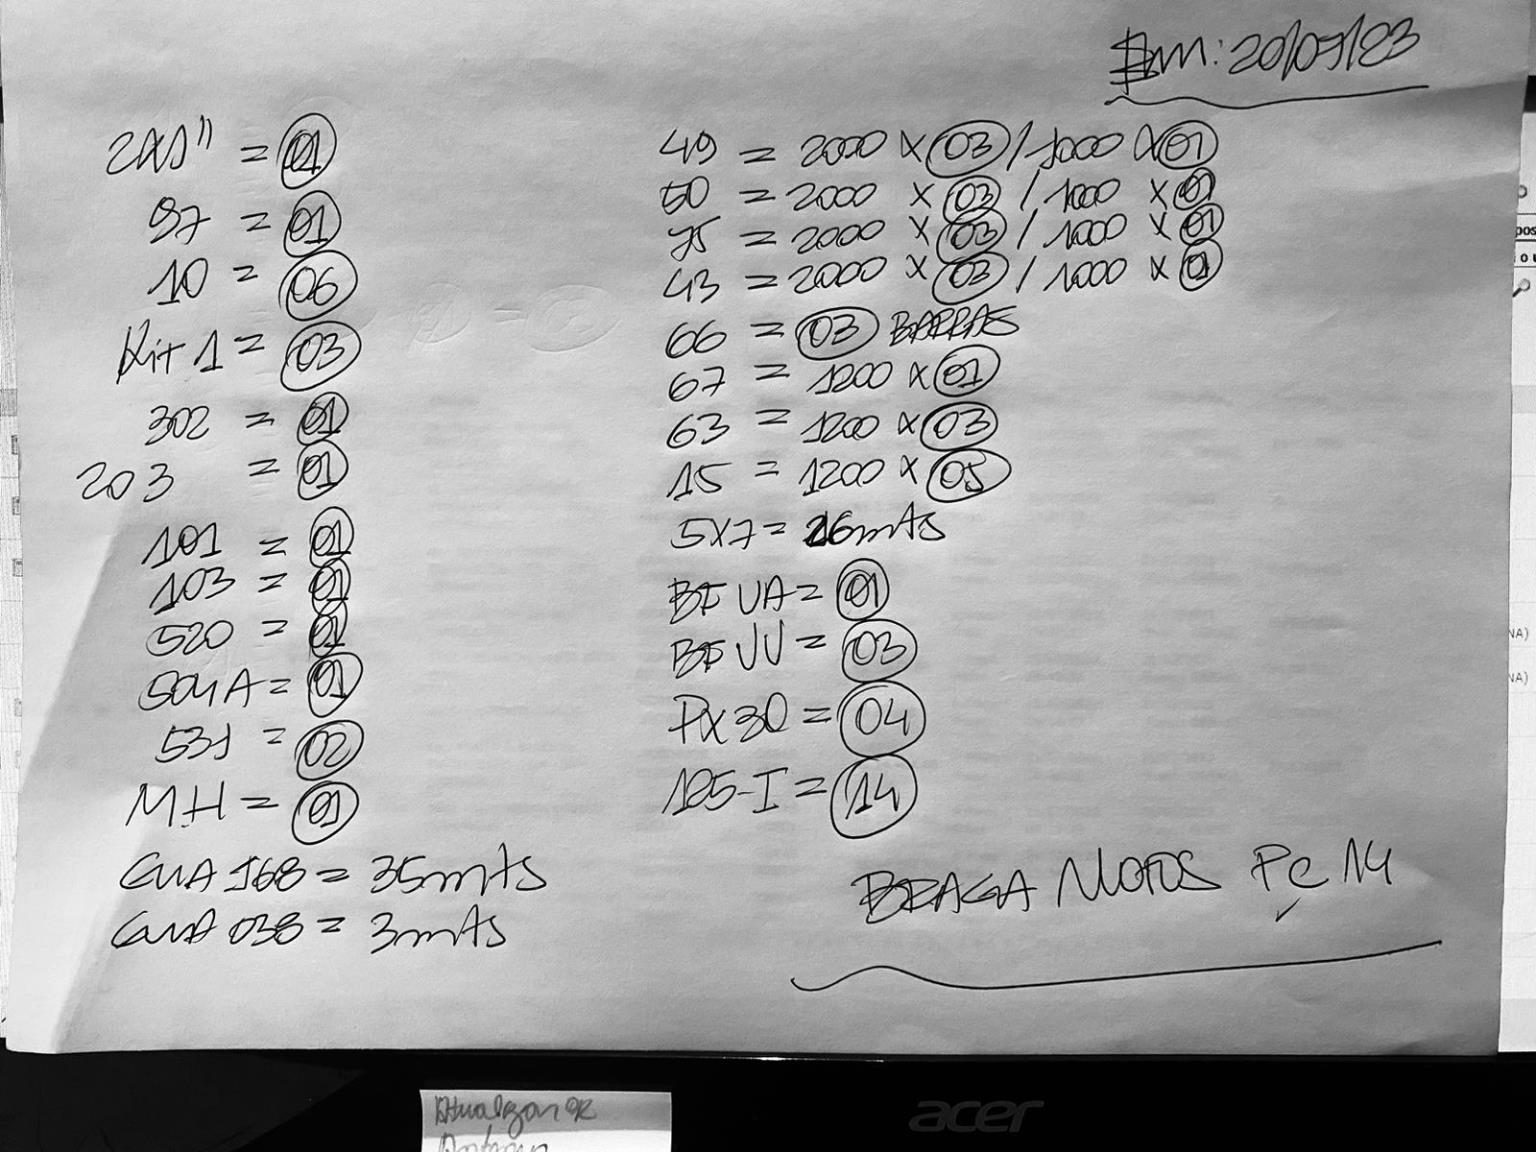 Em: 20/09/23
2X1" = 01
97 = 01
10 = 06
Kit 1 = 03
302 = 01
203 = 01
101 = 01
103 = 01
520 = 01
504A = 01
531 = 02
MH = 01
GUA 168 = 35mts
GUA 038 = 3mts
49 = 2000 X 03 / 1000 X 01
50 = 2000 X 03 / 1000 X 01
75 = 2000 X 03 / 1000 X 01
43 = 2000 X 03 / 1000 X 01
66 = 03 BARRAS
67 = 1200 X 01
63 = 1200 X 03
15 = 1200 X 05
5X7 = 26mts
BF UA = 01
BF VV = 03
PX30 = 04
125-I = 14
BRAGA MOTOS PC 14
acer